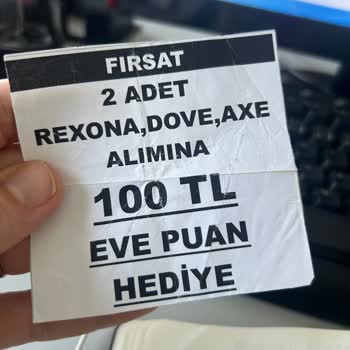 FIRSAT
2 ADET
REXONA,DOVE,AXE
ALIMINA
100 TL
EVE PUAN
HEDİYE